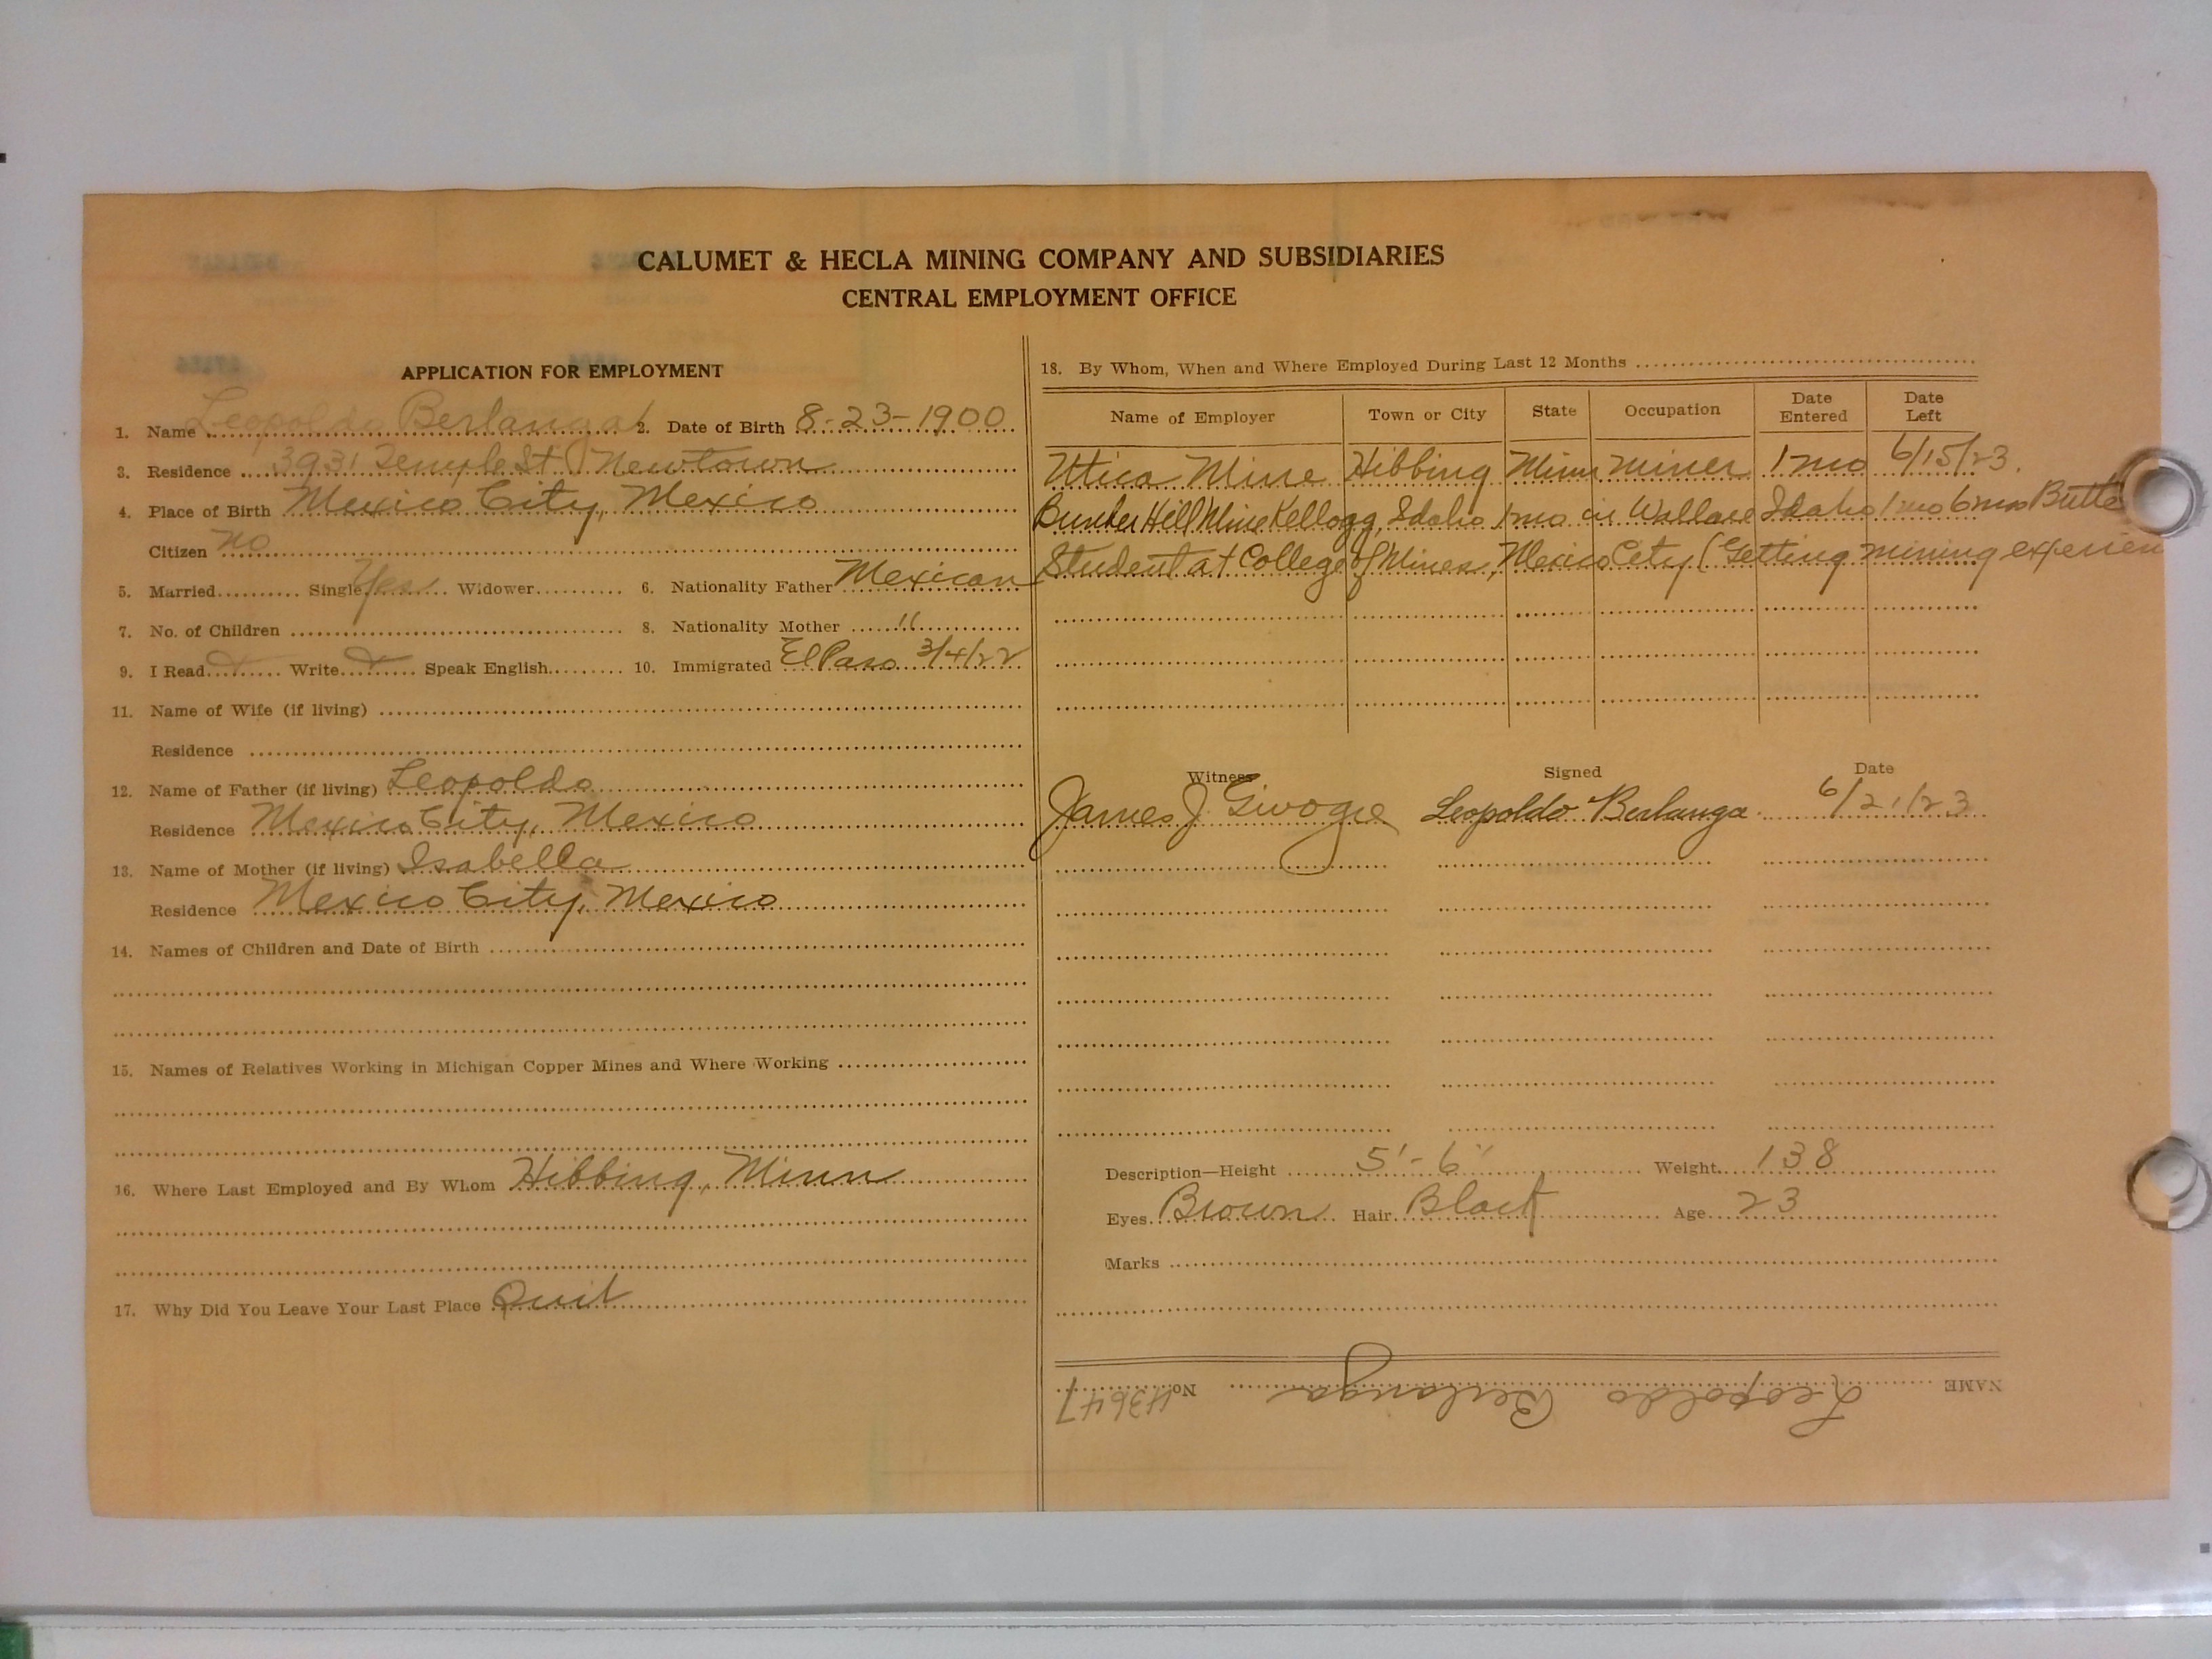 CALUMET & HECLA MINING COMPANY AND SUBSIDIARIES
CENTRAL EMPLOYMENT OFFICE
APPLICATION FOR EMPLOYMENT
1. Name Leopoldo Berlanga 2. Date of Birth 8-23-1900
3. Residence 3931 Temple St Newtown
4. Place of Birth Mexico City, Mexico
Citizen no
5. Married Single Yes Widower 6. Nationality Father Mexican
7. No. of Children 8. Nationality Mother "
9. I Read x Write x Speak English 10. Immigrated El Paso 3/4/22
11. Name of Wife (if living)
Residence
12. Name of Father (if living) Leopoldo
Residence Mexico City, Mexico
13. Name of Mother (if living) Isabella
Residence Mexico City, Mexico
14. Names of Children and Date of Birth
15. Names of Relatives Working in Michigan Copper Mines and Where Working
16. Where Last Employed and By Whom Hibbing, Minn
17. Why Did You Leave Your Last Place Quit
18. By Whom, When and Where Employed During Last 12 Months
Name of Employer Town or City State Occupation Date Entered Date Left
Utica Mine Hibbing Minn miner 1 mo 6/15/23.
Bunker Hill Mine Kellogg, Idaho 1 mo in Wallace Idaho 1 mo 6 mos Butte
Student at College of Mines, Mexico City (Getting mining experien
Witness Signed Date
James J. Leopoldo Berlanga 6/21/23
Description—Height 5'-6" Weight 138
Eyes Brown Hair Black Age 23
Marks
NAME Leopoldo Berlanga No. 43647